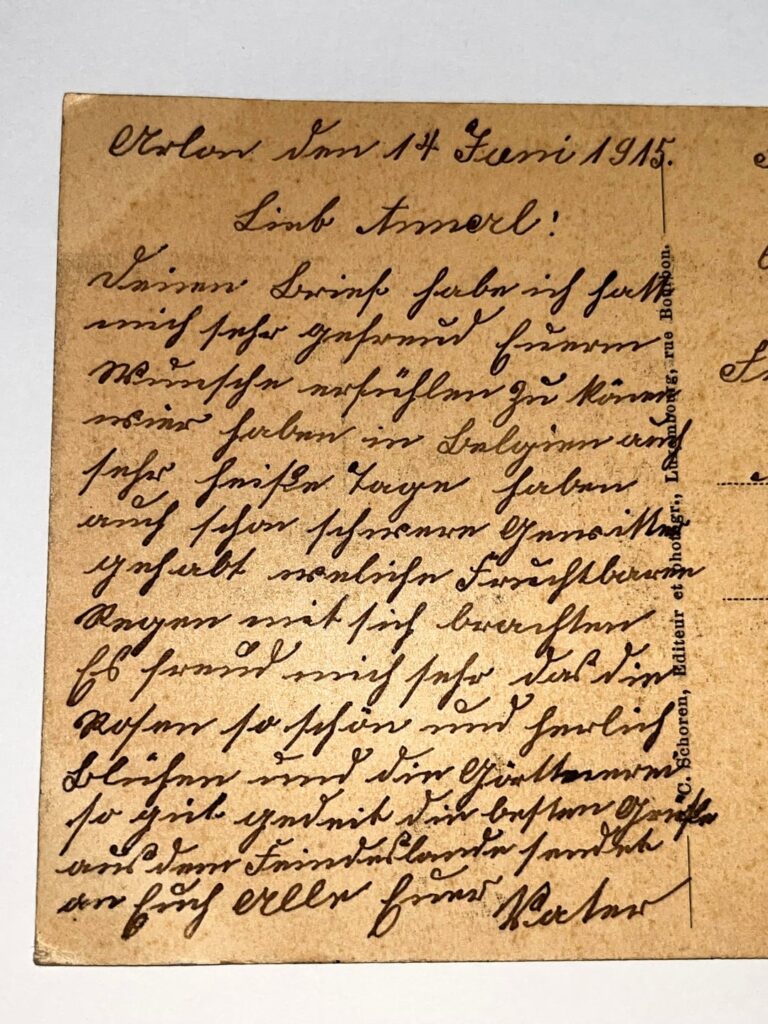 Arlon den 14 Juni 1915.
Lieb Annerl!
Deinen Brief habe ich hatt
mich sehr gefreud Euerm
Wunsche erfühlen zu könen
wier haben in Belgien auch
sehr heiße Tage haben
auch schon schwere Gewitter
gehabt weliche Fruchtbaren
Regen mit sich brachten
Es freud mich sehr das die
Rosen so schön und herlich
Blühen und die Görttnerei
so gut gedeit die besten Grüße
aus dem Feindeslande sendet
an Euch Alle Euer Vater
C. Schoren, Editeur et photogr., Luxembourg, rue Bourbon.